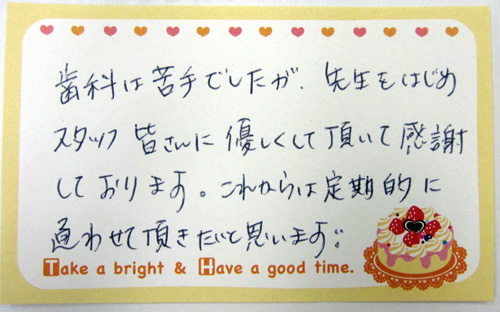 歯科は苦手でしたが、先生をはじめ
スタッフ皆さんに優しくして頂いて感謝
しております。これからは定期的に
通わせて頂きたいと思います。
Take a bright & Have a good time.